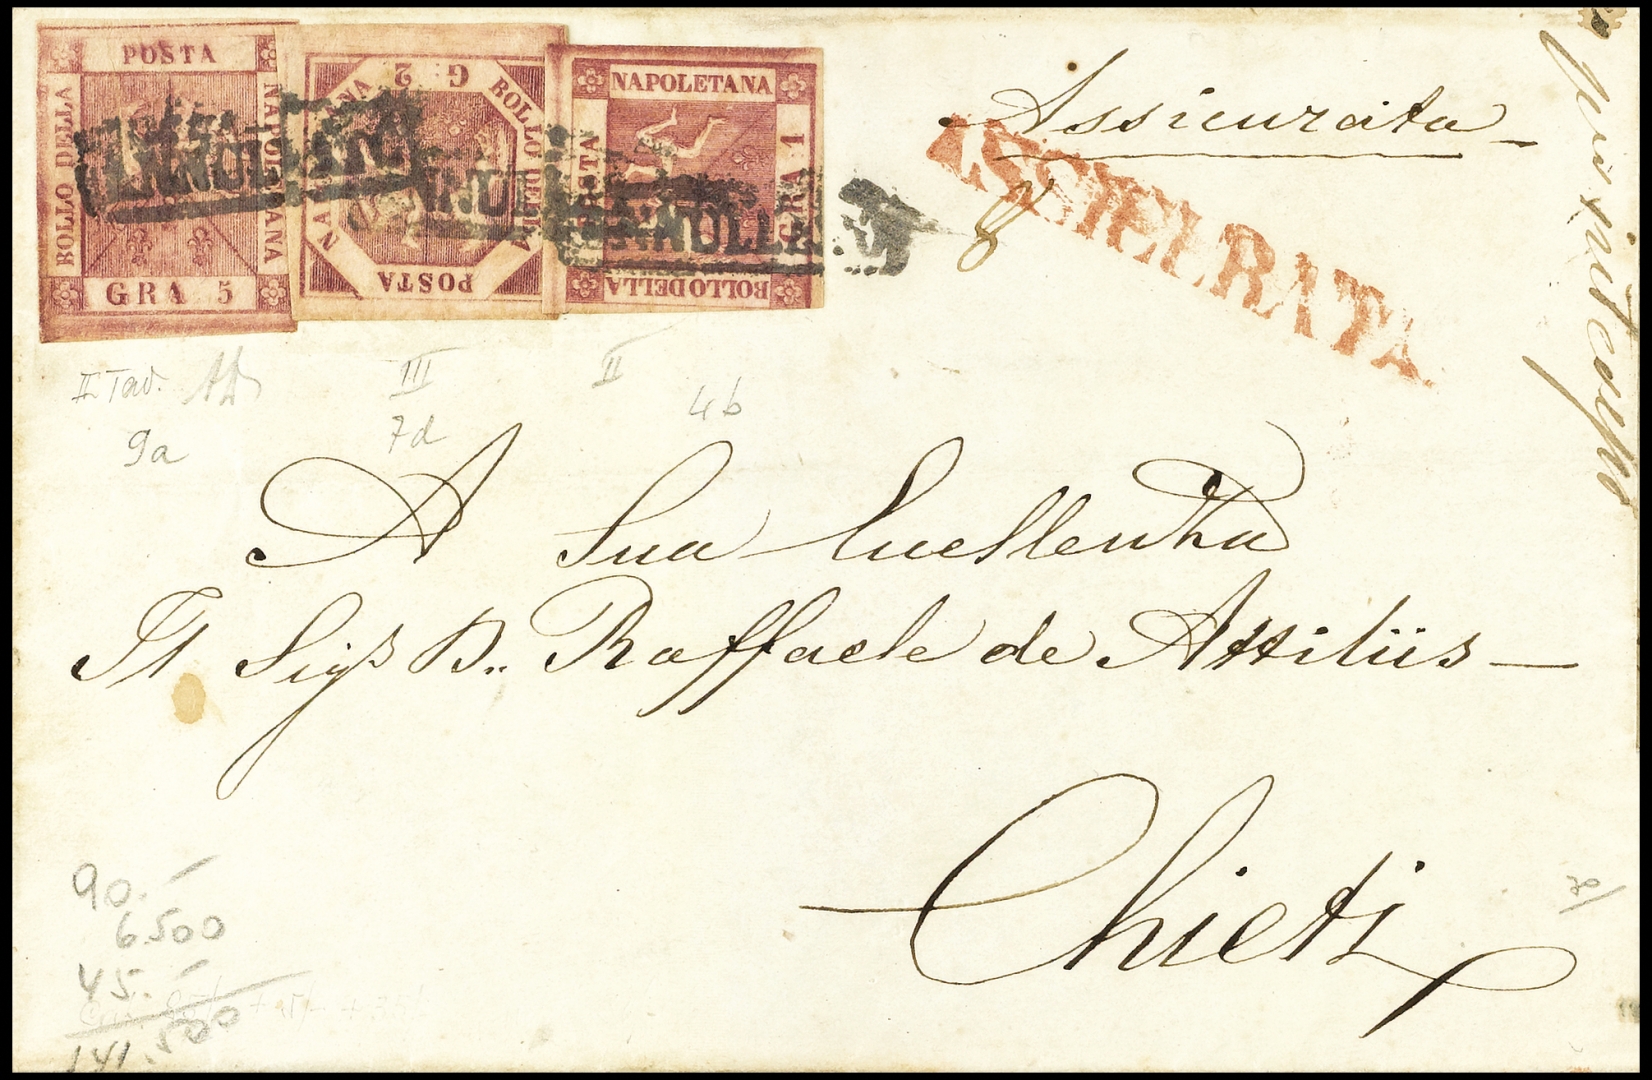 POSTA
BOLLO DELLA
NAPOLETANA
GRA 5
G 2
BOLLO DELLA
POSTA
NAPOLETANA
POSTA
GRA 1
BOLLO DELLA
ANNULLATO
ANNULLATO
ANNULLATO
Assicurata
8
ASSICURATA
II Tav.
III
II
9a
7d
4b
A Sua Eccellenza
Il Sigr D.. Raffaele de Attiliis
Chieti
90.-
6.500
45.-
141.500